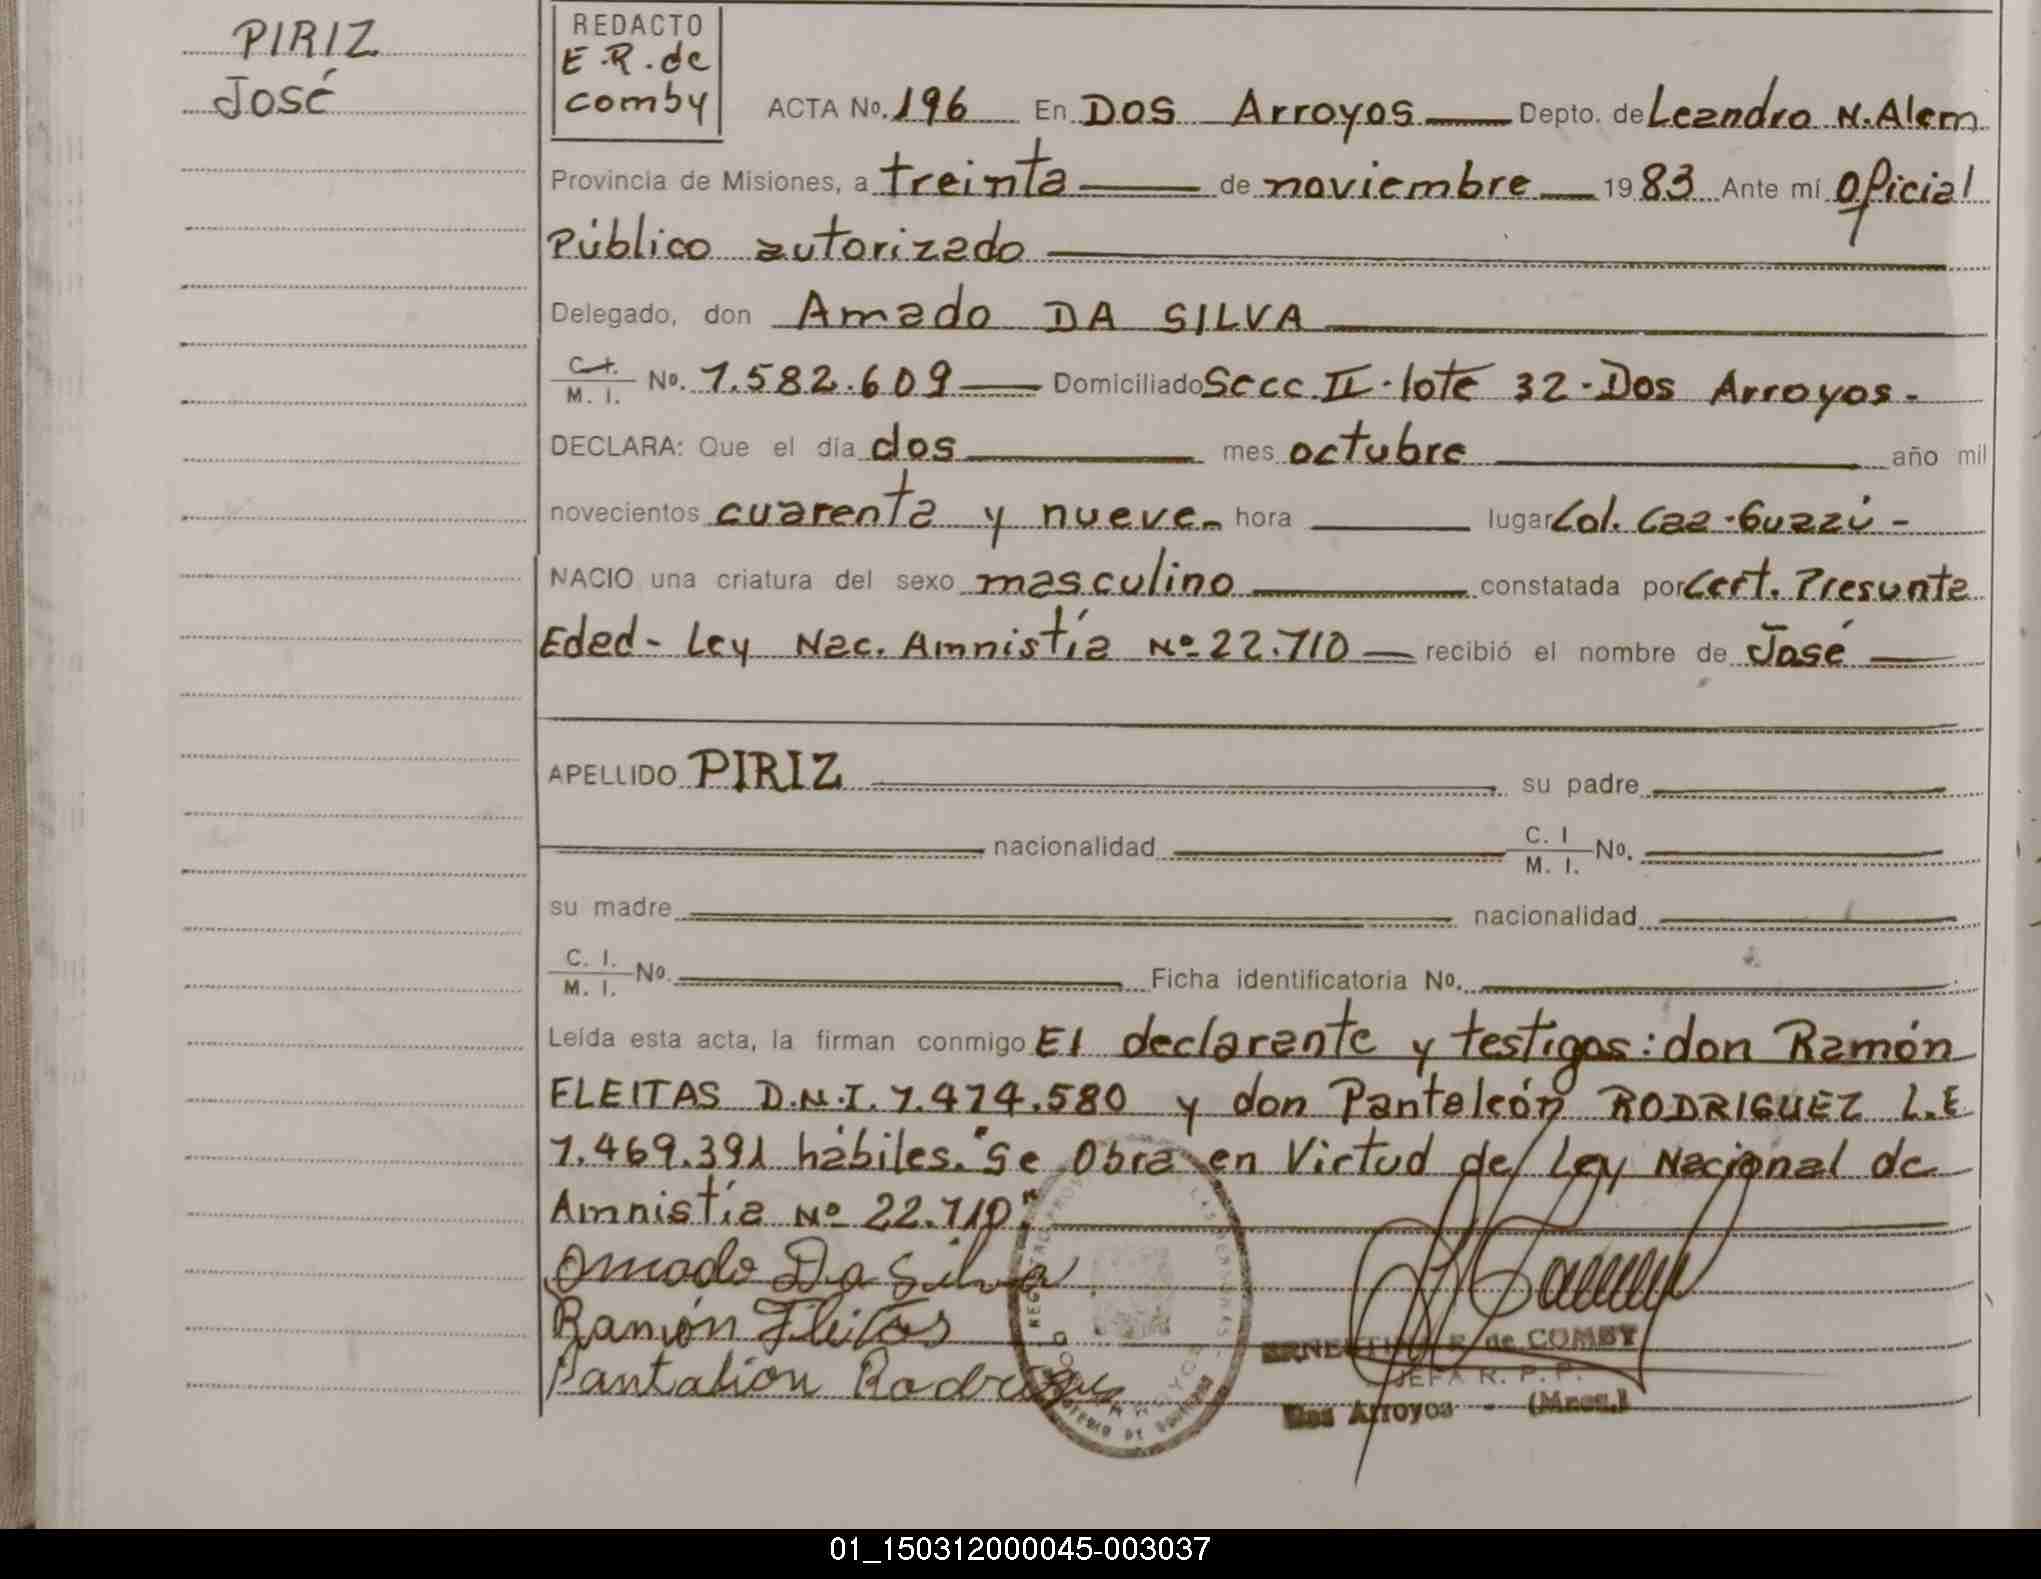 PIRIZ
José
REDACTO
E.R. de
comby
ACTA No. 196 En Dos Arroyos Depto. de Leandro N. Alem
Provincia de Misiones, a treinta de noviembre 1983 Ante mí Oficial
Público autorizado
Delegado, don Amado DA SILVA
C.I. M. I. No. 1.582.609 Domiciliado Secc. II - lote 32 - Dos Arroyos -
DECLARA: Que el día dos mes octubre año mil
novecientos cuarenta y nueve hora lugar Col. Caa-Guazú -
NACIO una criatura del sexo masculino constatada por Cert. Presunta
Edad - Ley Nac. Amnistía Nº 22.710 recibió el nombre de José
APELLIDO PIRIZ su padre
nacionalidad C. I M. I. No.
su madre nacionalidad
C. I. M. I. No. Ficha identificatoria No.
Leída esta acta, la firman conmigo El declarante y testigos: don Ramón
FLEITAS D.N.I. 7.474.580 y don Pantaleón RODRIGUEZ L.E
7.469.391 hábiles. "Se Obra en Virtud de Ley Nacional de
Amnistía Nº 22.710"
Amado Da Silva
Ramón Fleitas
Pantalion Rodriguez
de COMBY
JEFA R. P. P.
Dos Arroyos - (Mnes.)
01_150312000045-003037